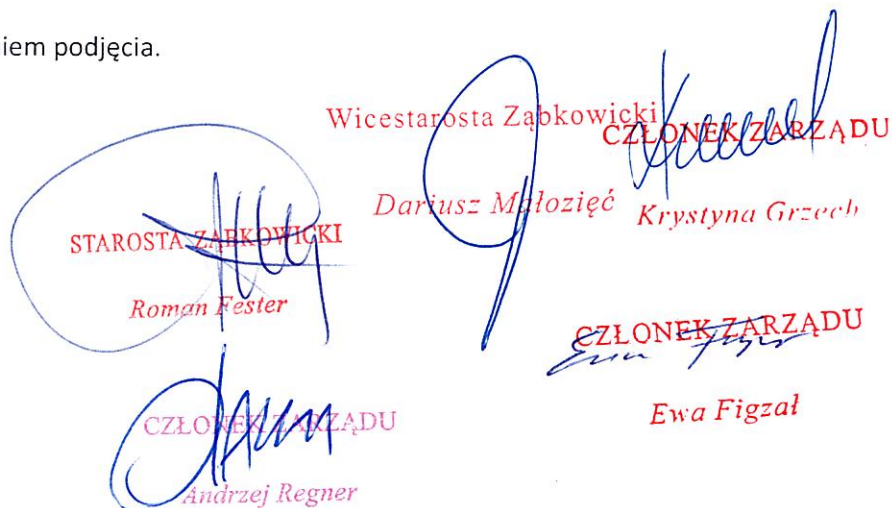 iem podjęcia.
Wicestarosta Ząbkowicki
Dariusz Małozięć
CZŁONEK ZARZĄDU
Krystyna Grzech
STAROSTA ZĄBKOWICKI
Roman Fester
CZŁONEK ZARZĄDU
Ewa Figzał
CZŁONEK ZARZĄDU
Andrzej Regner